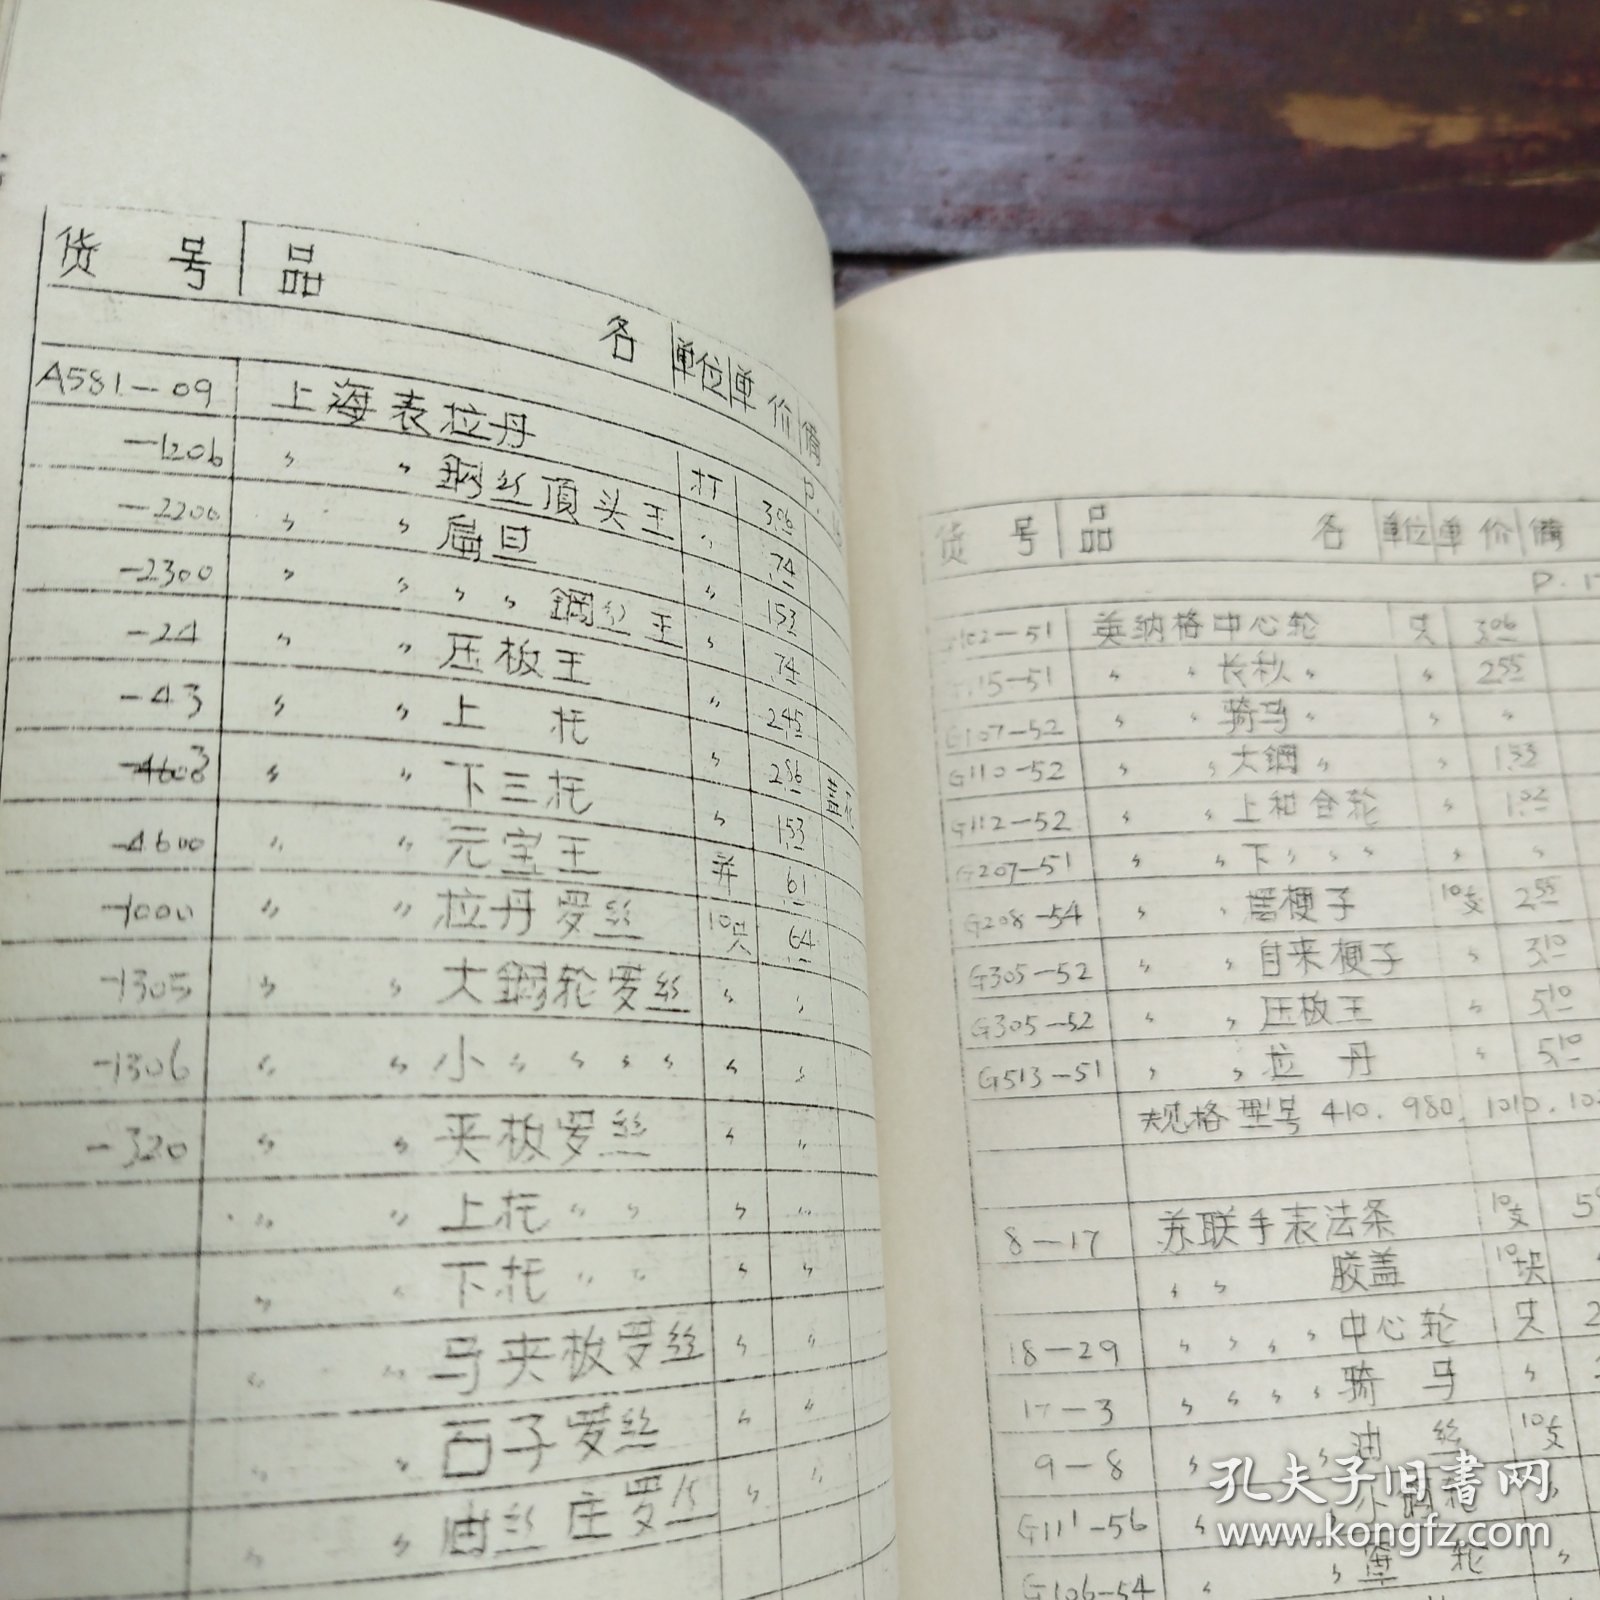 货号 品名 单位 单价 備
A581-09 上海表拉丹 打 3.06
-1206 〃 〃 鋼丝頂头王 〃 .74
-2200 〃 〃 扁旦 〃 1.53
-2300 〃 〃 〃 〃 鋼丝王 〃 .74
-24 〃 〃 压板王 〃 2.45
-43 〃 〃 上托 〃 2.86
〃 〃 下三托 〃 1.53
-4600 〃 〃 元宝王 并 .61
-1000 〃 〃 拉丹罗丝 10只 .64
-1305 〃 〃 大鋼轮罗丝 〃 〃
-1306 〃 〃 小 〃 〃 〃 〃 〃 〃
-320 〃 〃 夹板罗丝 〃 〃
〃 〃 上托 〃 〃 〃 〃
〃 〃 下托 〃 〃 〃 〃
〃 〃 马夹板罗丝 〃 〃
〃 〃 百子罗丝 〃 〃
〃 〃 油丝庄罗丝 〃 〃
货号 品名 单位 单价 備
P.17
G102-51 英纳格中心轮 只 3.06
G115-51 〃 〃 长秋 〃 〃 2.55
G107-52 〃 〃 骑马 〃 〃 〃
G110-52 〃 〃 大鋼 〃 〃 1.53
G112-52 〃 〃 上和合轮 〃 1.02
G207-51 〃 〃 下 〃 〃 〃 〃 〃
G208-54 〃 〃 擺梗子 10支 2.55
G305-52 〃 〃 自来梗子 〃 3.10
G305-52 〃 〃 压板王 〃 5.10
G513-51 〃 〃 拉丹 〃 5.10
规格型号 410. 980. 1010. 10
8-17 苏联手表法条 10支 5
〃 〃 胶盖 10块
18-29 〃 〃 〃 〃 中心轮 只 2
17-3 〃 〃 〃 〃 骑马 〃
9-8 〃 〃 〃 油丝 10支
G111-56 〃 〃 小鋼轮 〃
G106-54 〃 〃 轮 〃
孔夫子旧書网
www.kongfz.com